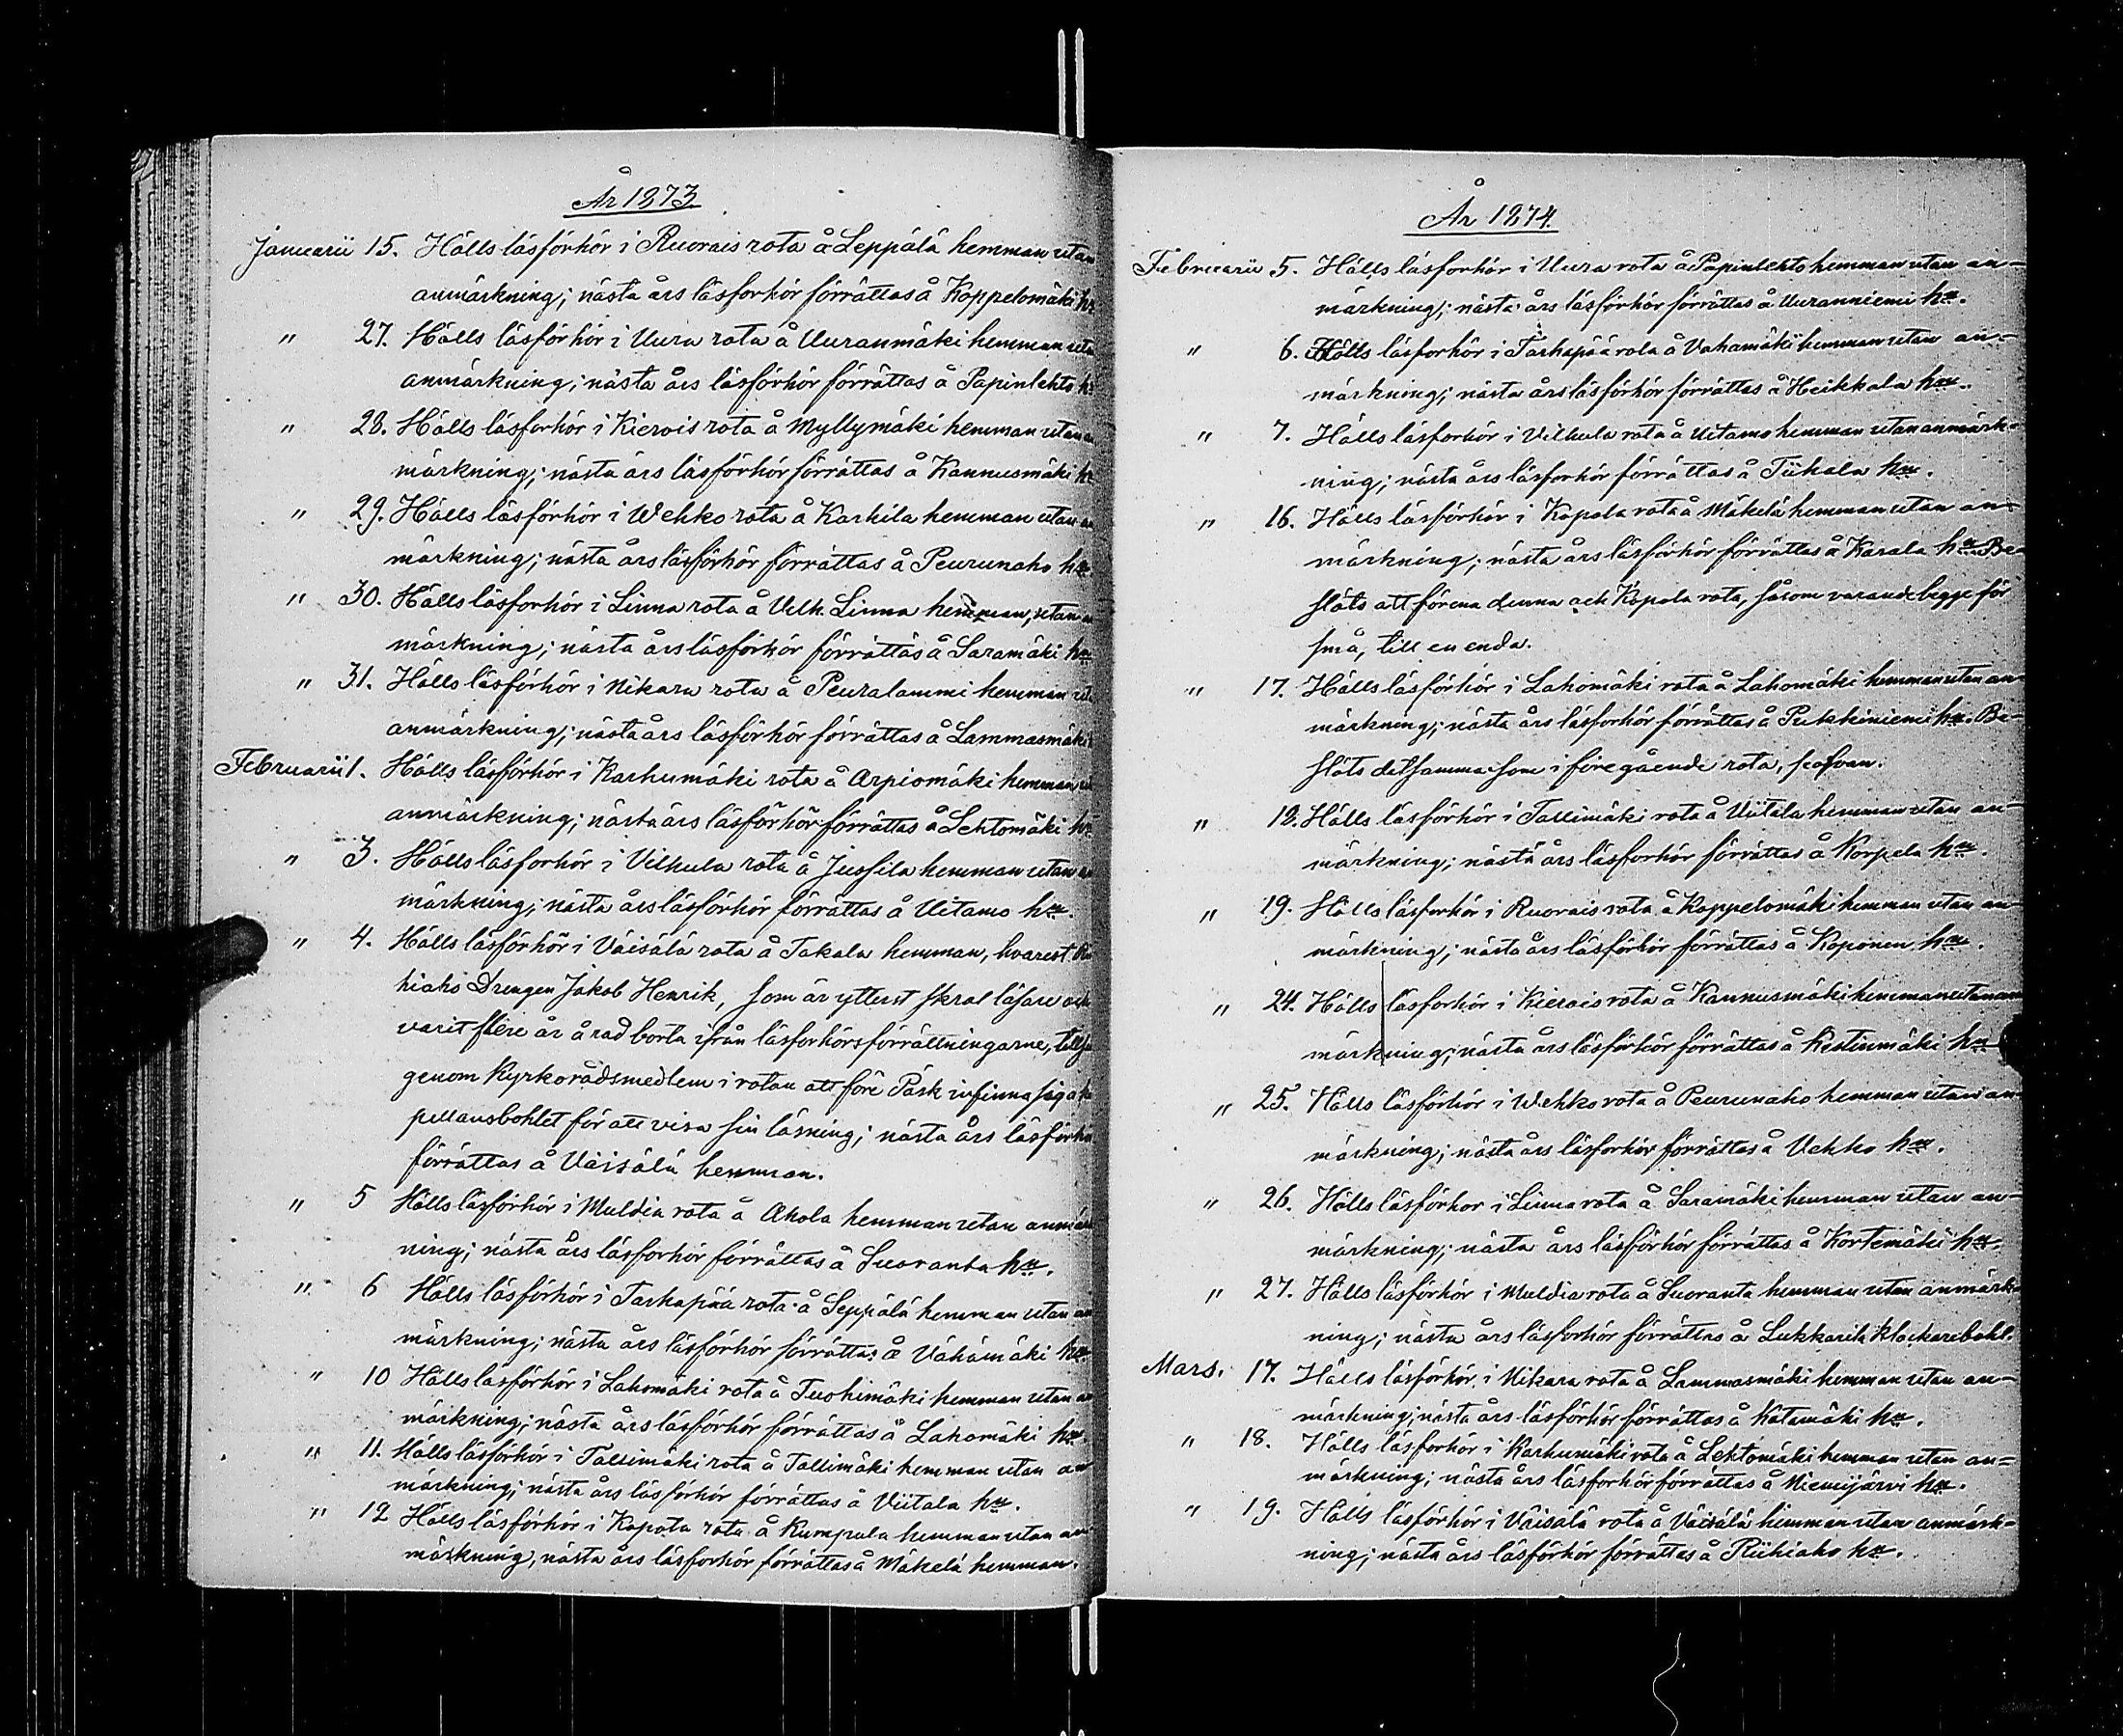 År 1873.
Januarii 15. Hölls läsförhör i Ruorais rota å Leppälä hemman utan
anmärkning; nästa års läsförhör förrättas å Koppelomäki hn
" 27. Hölls läsförhör i Uura rota å Uuranmäki hemman uta
anmärkning; nästa års läsförhör förrättas å Papinlehto hn
" 28. Hölls läsförhör i Kierois rota å Myllymäki hemman utan an
märkning; nästa års läsförhör förrättas å Kannusmäki hn
" 29. Hölls läsförhör i Wehko rota å Karhila hemman utan an
märkning; nästa års läsförhör förrättas å Peurunaho hn
" 30. Hölls läsförhör i Linna rota å Velh. Linna hemman, utan an
märkning; nästa års läsförhör förrättas å Saramäki hn
" 31. Hölls läsförhör i Nikara rota å Peuralammi hemman uta
anmärkning; nästa års läsförhör förrättas å Lammasmäki
Februarii 1. Hölls läsförhör i Karhumäki rota å Arpiomäki hemman ut
anmärkning; nästa års läsförhör förrättas å Lehtomäki hn
" 3. Hölls läsförhör i Vilkula rota å Jussila hemman utan an
märkning; nästa års läsförhör förrättas å Uitamo hn.
" 4. Hölls läsförhör i Väisälä rota å Takala hemman, hvarest Rii
hiaho Drengen Jakob Henrik, som är ytterst skral läsare och
varit flere år å rad borta ifrån läsförhörsförrättningarne, tillsa
genom Kyrkorådsmedlem i rotan att före Påsk infinna sig å ka
pellansbohlet för att visa sin läsning; nästa års läsförhör
förrättas å Väisälä hemman.
" 5 Hölls läsförhör i Muldia rota å Ahola hemman utan anmärk
ning; nästa års läsförhör förrättas å Suoranta hn.
" 6 Hölls läsförhör i Tarhapää rota å Seppälä hemman utan an
märkning; nästa års läsförhör förrättas å Vähämäki hn
" 10 Hölls läsförhör i Lahomäki rota å Tuohimäki hemman utan an
märkning; nästa års läsförhör förrättas å Lahomäki hn.
" 11. Hölls läsförhör i Tallimäki rota å Tallimäki hemman utan an
märkning; nästa års läsförhör förrättas å Viitala hn.
" 12 Hölls läsförhör i Kopola rota å Kumpula hemman utan an
märkning, nästa års läsförhör förrättas å Mäkelä hemman.
År 1874.
Februarii 5. Hölls läsförhör i Uura rota å Papinlehto hemman utan an-
märkning; nästa års läsförhör förrättas å Uuranniemi hn.
" 6. Hölls läsförhör i Tarhapää rota å Vähämäki hemman utan an-
märkning; nästa års läsförhör förrättas å Heikkala hn.
" 7. Hölls läsförhör i Vilkula rota å Uitamo hemman utan anmärk-
ning; nästa års läsförhör förrättas å Tiihala hn.
" 16. Hölls läsförhör i Kopola rota å Mäkelä hemman utan an-
märkning; nästa års läsförhör förrättas å Karala hn. Be-
slöts att förena denna och Kopola rota, såsom varande begge för
små, till en enda.
" 17. Hölls läsförhör i Lahomäki rota å Lahomäki hemman utan an-
märkning; nästa års läsförhör förrättas å Pukkiniemi hn. Be-
slöts detsamma som i föregående rota, se ofvan.
" 18. Hölls läsförhör i Tallimäki rota å Viitala hemman utan an-
märkning; nästa års läsförhör förrättas å Korpela hn.
" 19. Hölls läsförhör i Ruorais rota å Koppelomäki hemman utan an-
märkning; nästa års läsförhör förrättas å Koponen hn.
" 24. Hölls läsförhör i Kierois rota å Kannusmäki hemman utan an
märkning; nästa års läsförhör förrättas å Kestinmäki hn
" 25. Hölls läsförhör i Wehko rota å Peurunaho hemman utan an-
märkning; nästa års läsförhör förrättas å Vehko hn.
" 26. Hölls läsförhör i Linna rota å Saramäki hemman utan an-
märkning; nästa års läsförhör förrättas å Kortemäki hn.
" 27. Hölls läsförhör i Muldia rota å Suoranta hemman utan anmärk-
ning; nästa års läsförhör förrättas å Lukkarila klockarebohl.
Mars. 17. Hölls läsförhör i Nikara rota å Lammasmäki hemman utan an-
märkning; nästa års läsförhör förrättas å Kätämäki hn.
" 18. Hölls läsförhör i Karhumäki rota å Lehtomäki hemman utan an-
märkning; nästa års läsförhör förrättas å Niemijärvi hn.
" 19. Hölls läsförhör i Väisälä rota å Väisälä hemman utan anmärk-
ning; nästa års läsförhör förrättas å Riihiaho hn.